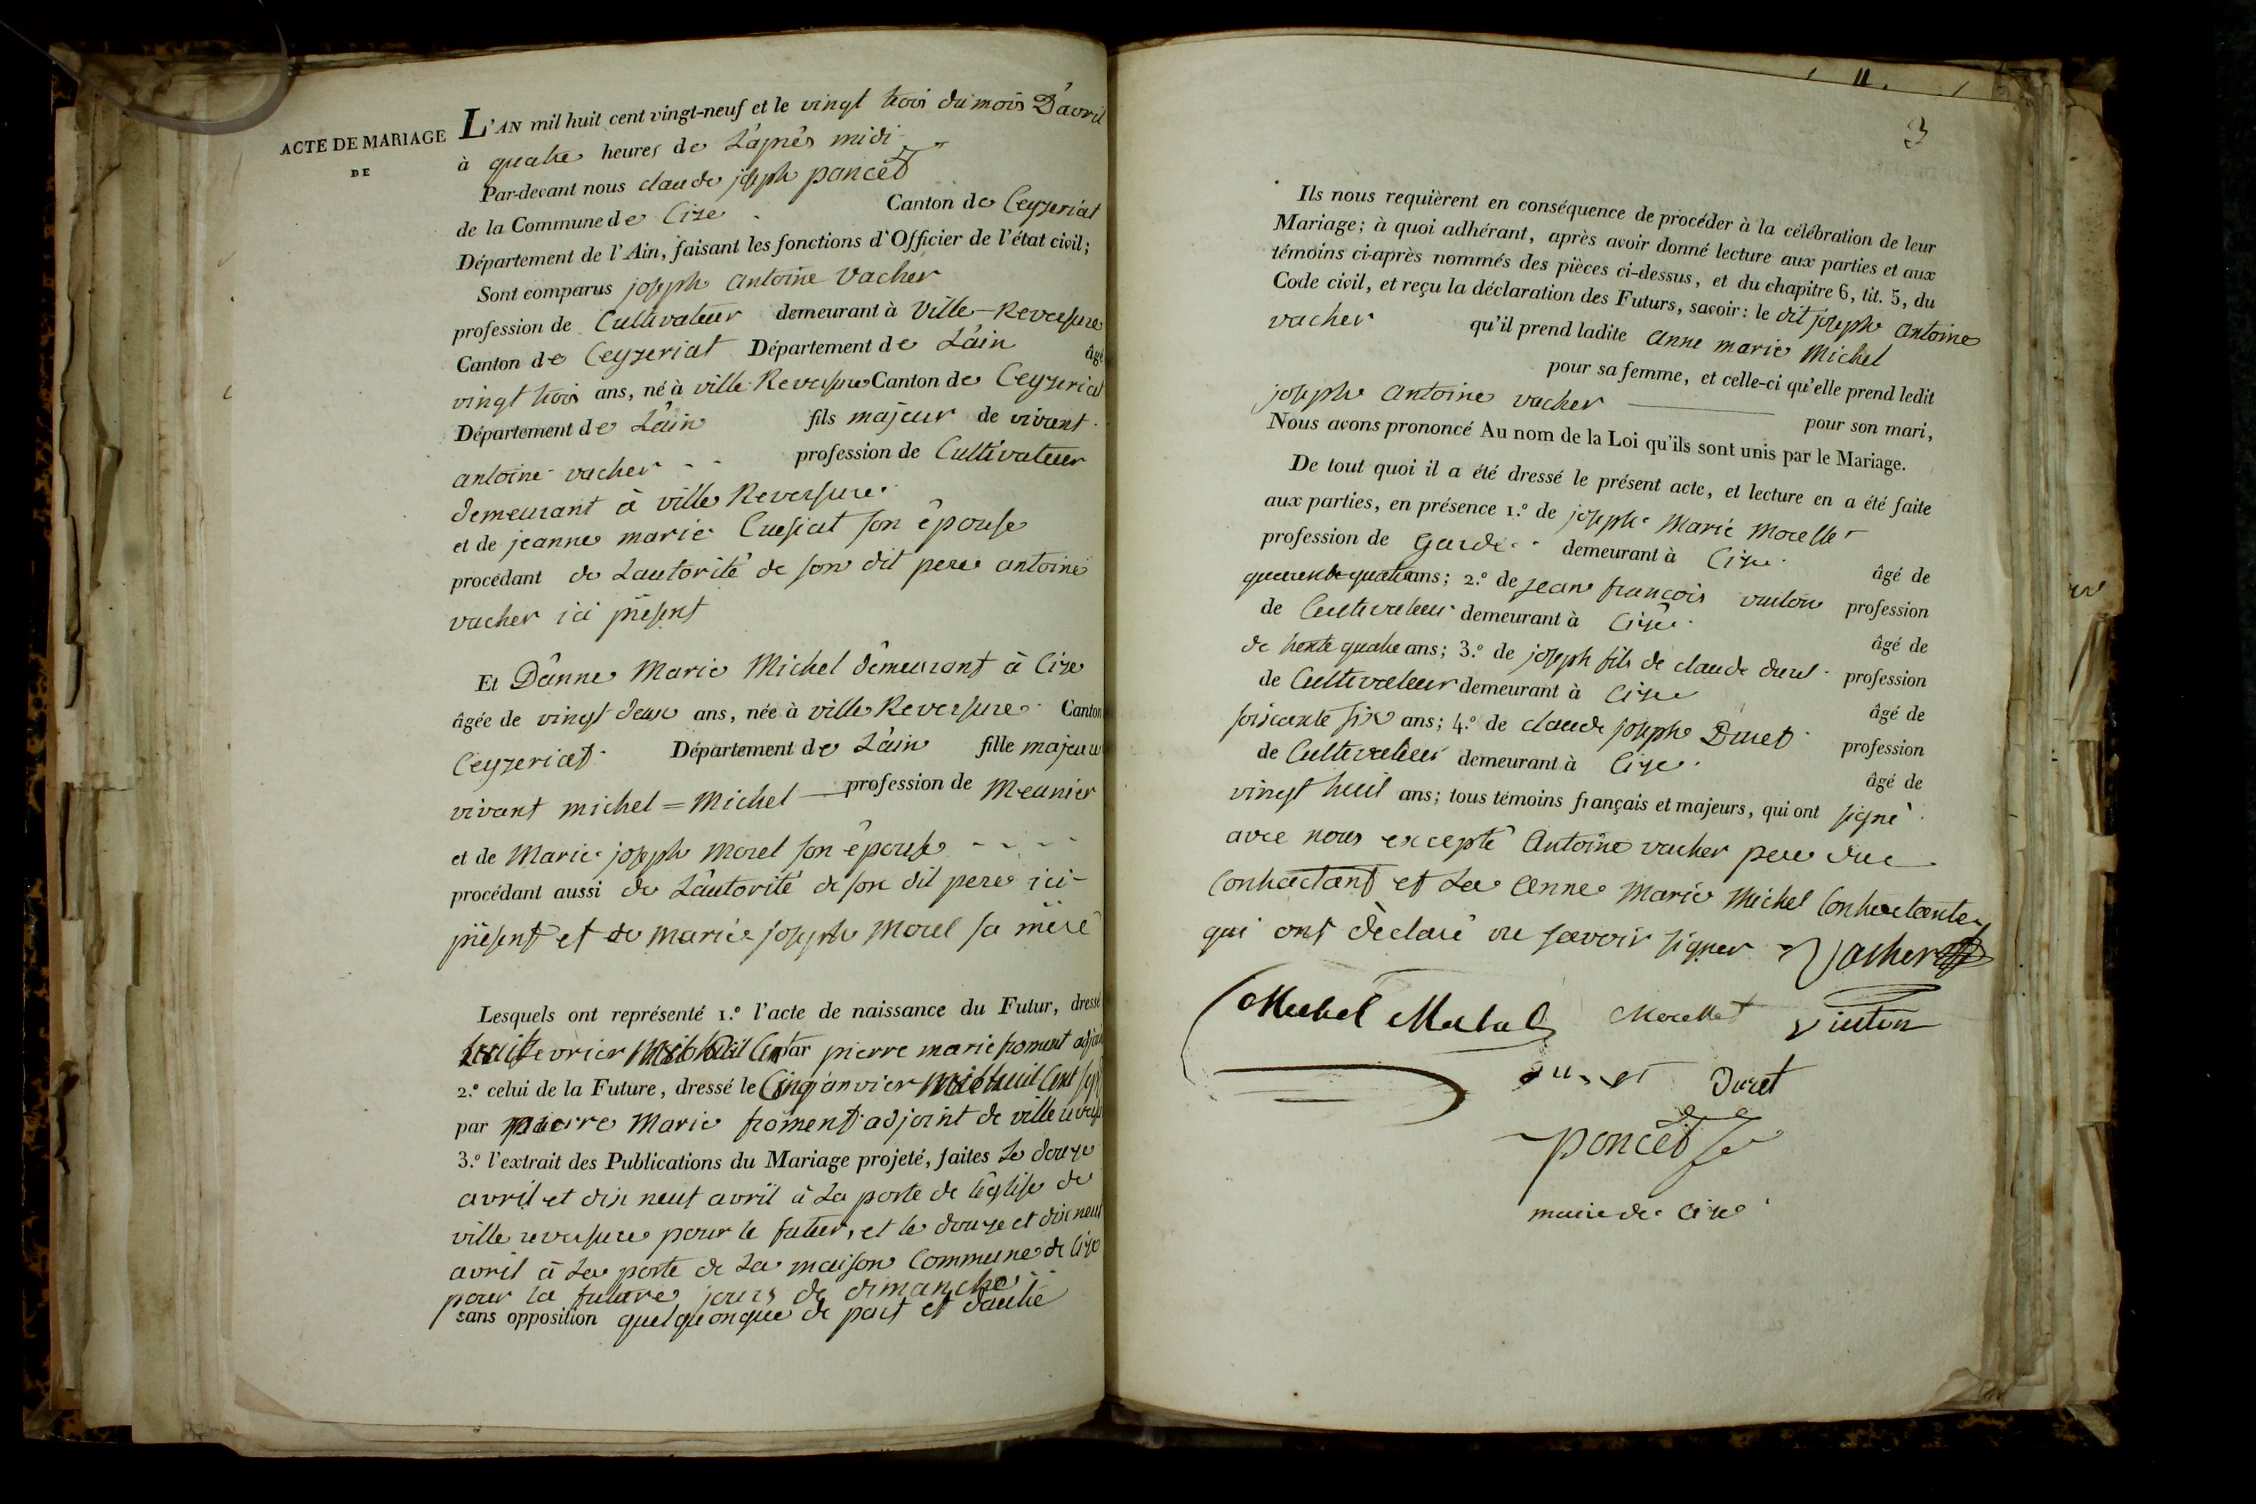 ACTE DE MARIAGE
DE
L'AN mil huit cent vingt-neuf et le vingt trois du mois D'avril
à quatre heures de L'après midi
Par-devant nous claude joseph poncet
de la Commune de Cize Canton de Ceyzeriat
Département de l'Ain, faisant les fonctions d'Officier de l'état civil;
Sont comparus joseph antoine vacher
profession de Cultivateur demeurant à Ville-Reversure
Canton de Ceyzeriat Département de L'ain âgé
vingt trois ans, né à ville Reversure Canton de Ceyzeriat
Département de L'ain fils majeur de vivant
antoine vacher profession de Cultivateur
demeurant à ville Reversure
et de jeanne marie Cuesiat son épouse
procédant de Lautorité de son dit pere antoine
vacher ici présent
Et D'anne Marie Michel demeurant à Cize
âgée de vingt deux ans, née à ville Reversure Canton
Ceyzeriat Département de L'ain fille majeur
vivant michel = Michel profession de Meunier
et de Marie joseph Morel son épouse
procédant aussi de L'autorité de son dit pere ici
présent et de marie joseph Morel sa mère
Lesquels ont représenté 1.° l'acte de naissance du Futur, dressé
fevrier par pierre marie froment adjoint
2.° celui de la Future, dressé le Cinq janvier mil huit Cent sept
par pierre Marie froment adjoint de ville
3.° l'extrait des Publications du Mariage projeté, faites Le douze
avril et dix neuf avril à La porte de L'église de
ville reversure pour le futur, et le douze et dix neuf
avril à La porte de La maison Commune de Cize
pour la future jours de dimanche
sans opposition quelquonque de part et d'autre
3
Ils nous requièrent en conséquence de procéder à la célébration de leur
Mariage; à quoi adhérant, après avoir donné lecture aux parties et aux
témoins ci-après nommés des pièces ci-dessus, et du chapitre 6, tit. 5, du
Code civil, et reçu la déclaration des Futurs, savoir: le dit joseph antoine
vacher qu'il prend ladite anne marie Michel
pour sa femme, et celle-ci qu'elle prend ledit
joseph antoine vacher pour son mari,
Nous avons prononcé Au nom de la Loi qu'ils sont unis par le Mariage.
De tout quoi il a été dressé le présent acte, et lecture en a été faite
aux parties, en présence 1.° de joseph Marie Morellet
profession de Garde demeurant à Cize âgé de
quarente quatre ans; 2.° de jean françois profession
de Cultivateur demeurant à Cize âgé de
de trente quatre ans; 3.° de joseph fils de claude duret profession
de Cultivateur demeurant à Cize âgé de
soixante six ans; 4.° de claude joseph Duret profession
de Cultivateur demeurant à Cize âgé de
vingt huit ans; tous témoins français et majeurs, qui ont signé
avec nous excepté Antoine vacher pere du
Contractant et La anne Marie Michel Contractante
qui ont déclaré ne savoir signer Vacher
Michel Michel Morellet
duret Duret
poncet
maire de Cize